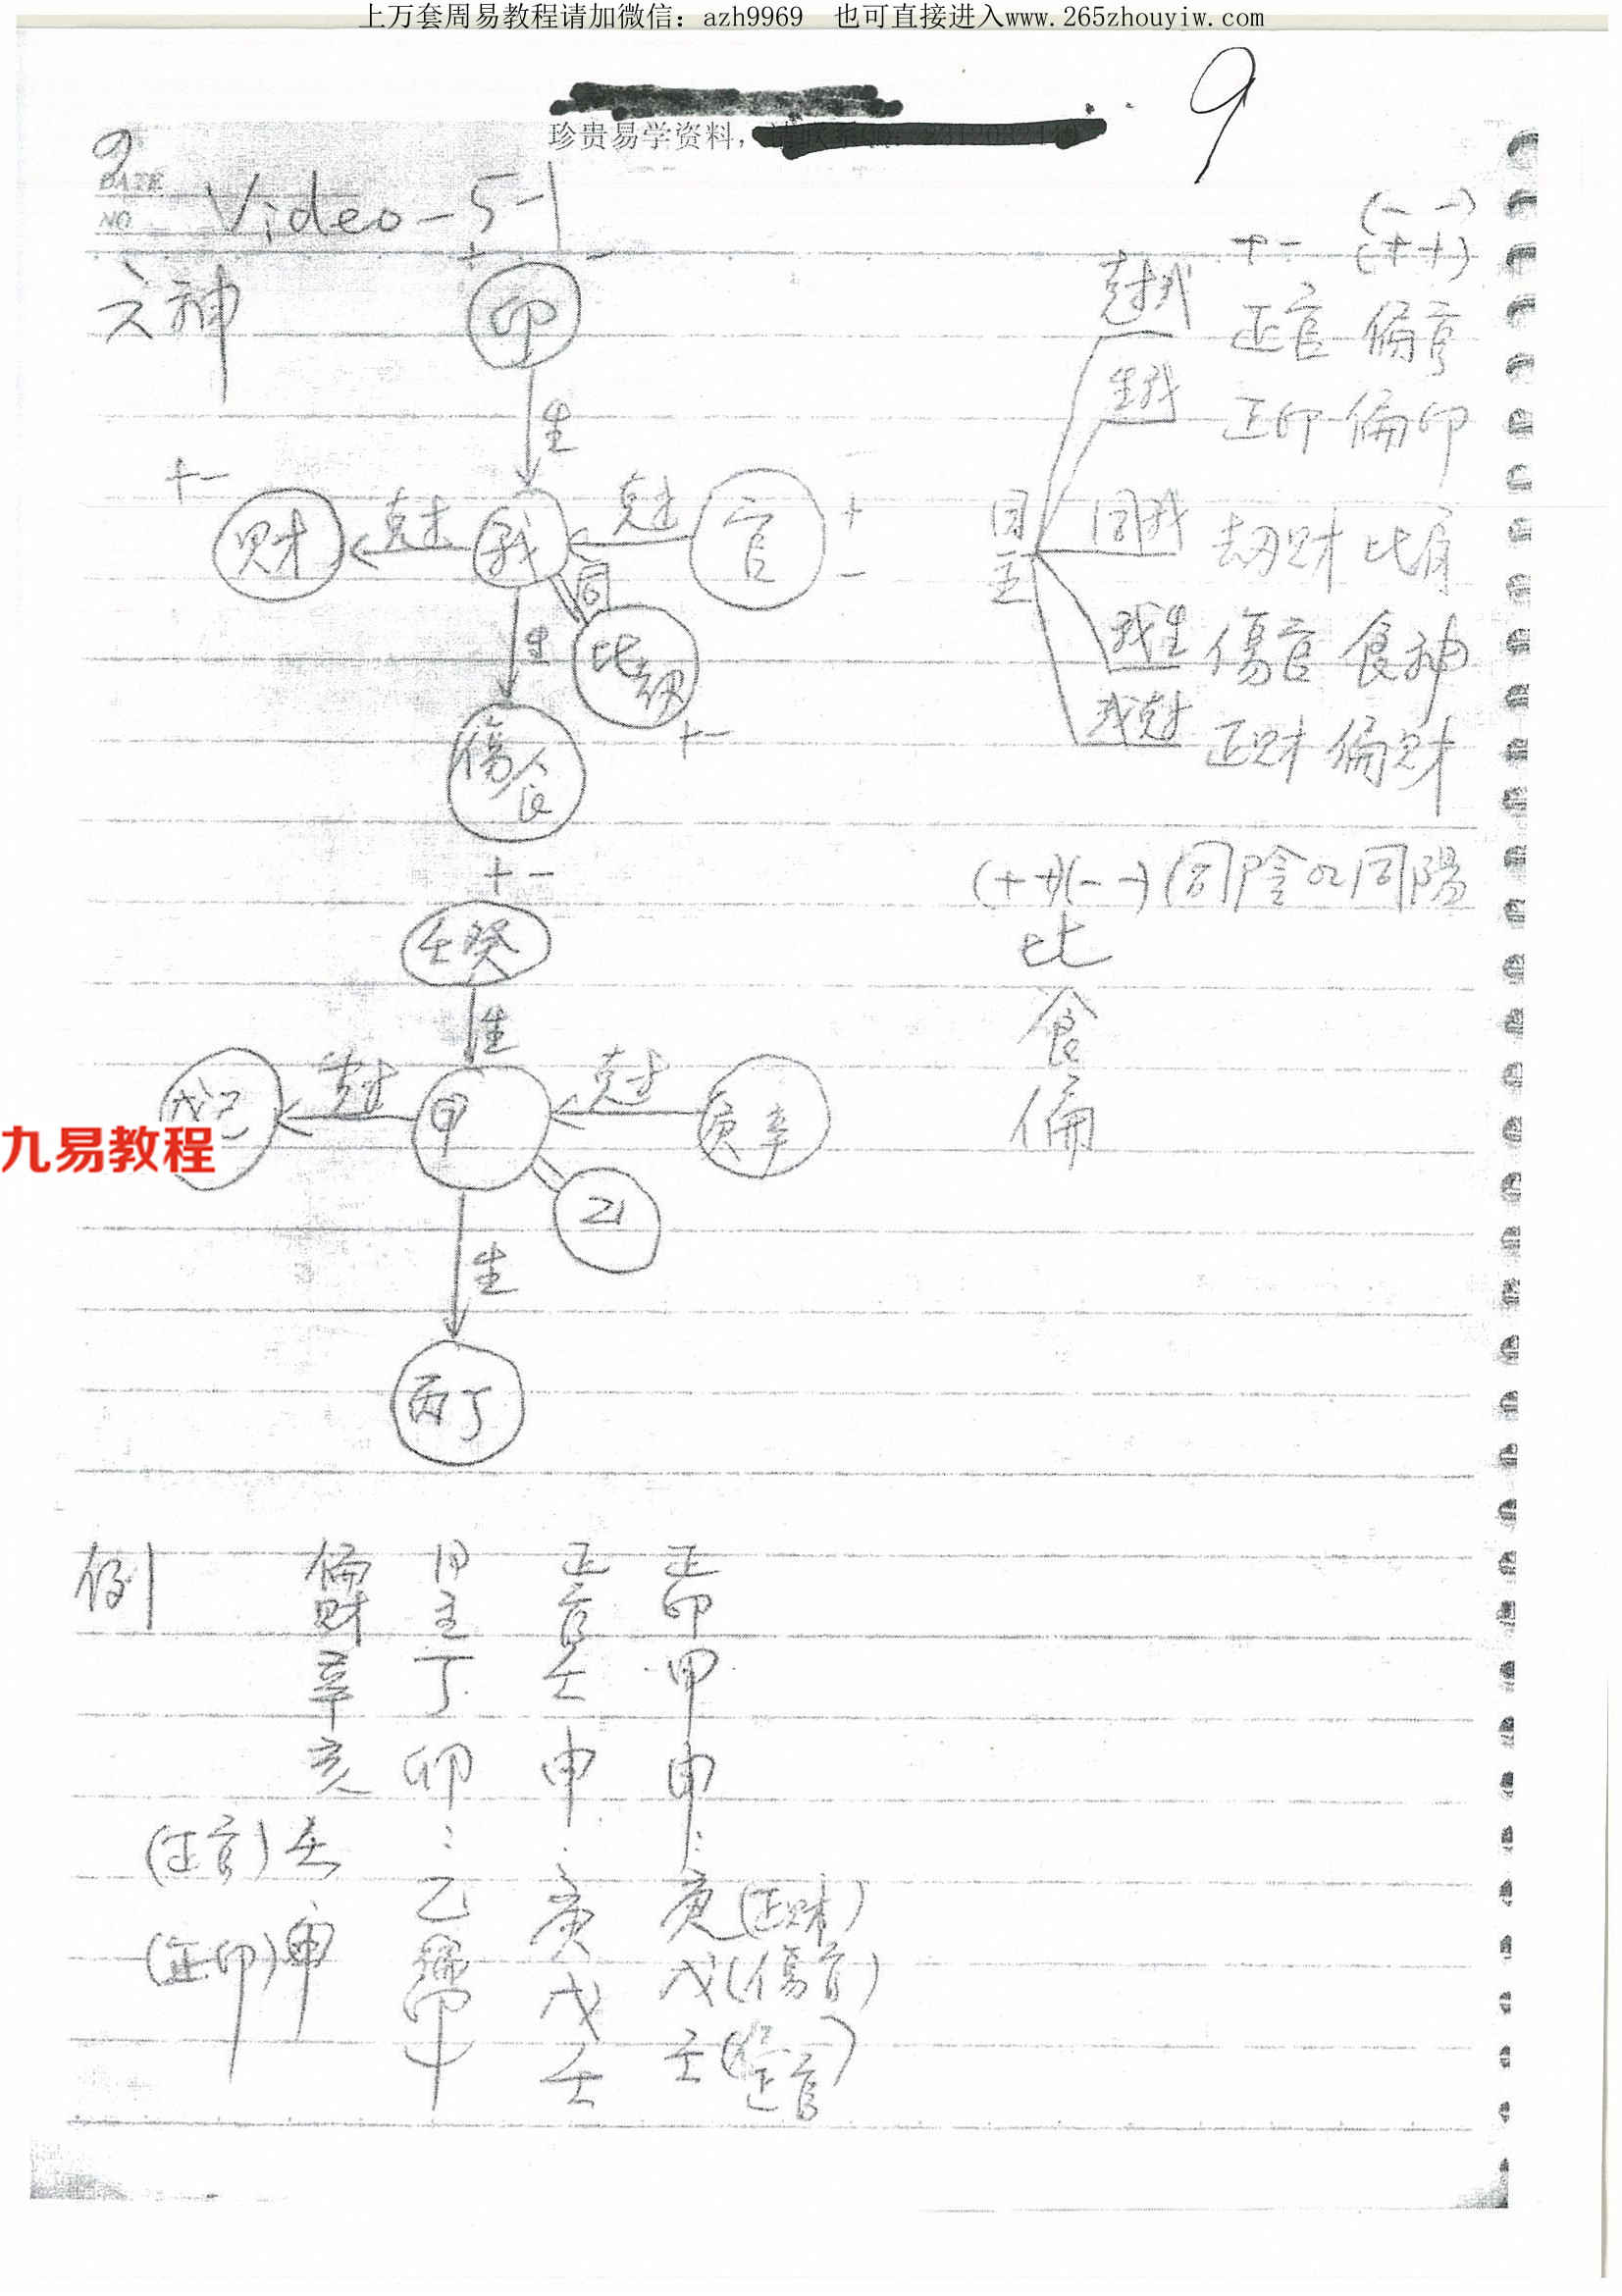 上万套周易教程请加微信：azh9969 也可直接进入www.265zhouyiw.com
9
珍贵易学资料，
9
DATE
NO
Video-5-1
六神
+ 印 -
生
+-
财 克 我 克 官
+
-
同
生
比劫
+-
傷食
+-
(- -)
+ - (+ +)
克我 正官 偏官
生我 正印 偏印
日主
同我 劫财 比肩
我生 傷官 食神
我克 正财 偏财
(++)(- -) 同陰or同陽
比
食
偏
壬癸
生
戊己 克 甲 克 庚辛
乙
生
丙丁
九易教程
例
偏财 日主 正官 正印
辛 丁 壬 甲
亥 卯 申 申
(正官)壬 乙 庚 庚(正财)
(正印)甲 偏印 戊 戊(傷官)
壬 壬(正官)